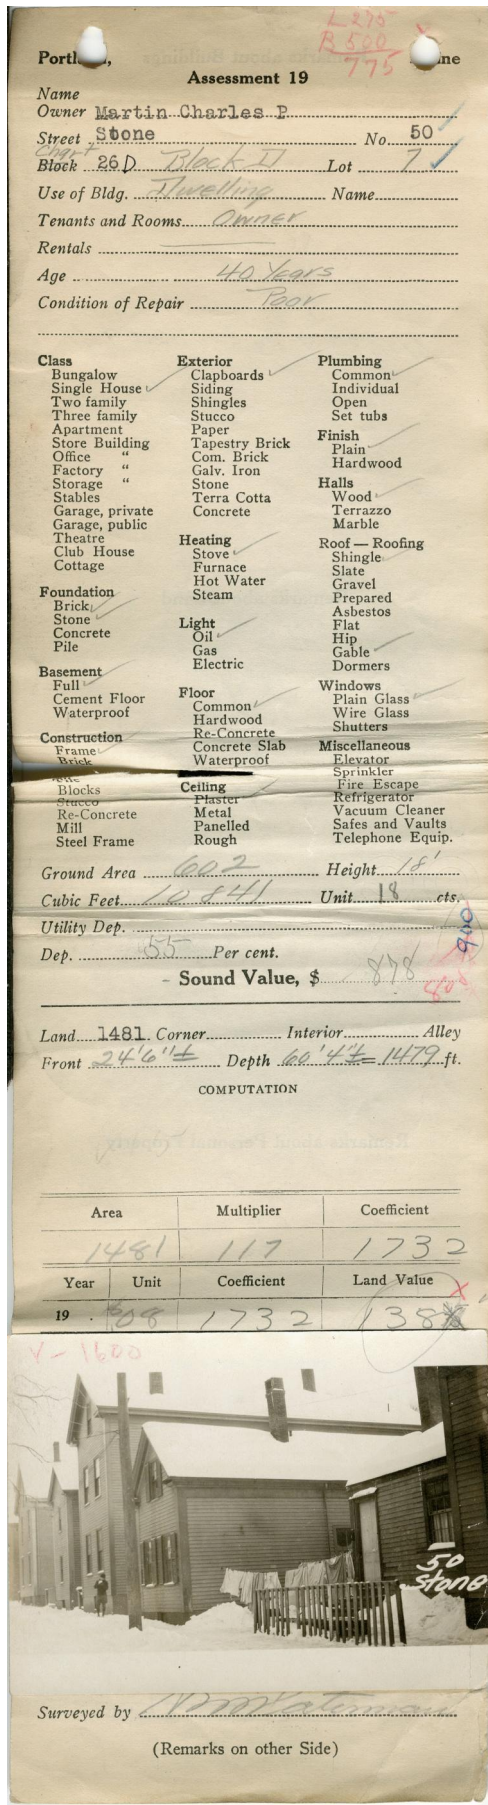 L 275
B 500
775
Portland, Maine
Assessment 19
Name
Owner Martin Charles P
Street Stone No. 50
Chart
Block 26D Block D Lot 7
Use of Bldg. Dwelling Name
Tenants and Rooms Owner
Rentals
Age 40 Years
Condition of Repair Poor
Class
Bungalow
Single House ✓
Two family
Three family
Apartment
Store Building
Office "
Factory "
Storage "
Stables
Garage, private
Garage, public
Theatre
Club House
Cottage
Foundation
Brick ✓
Stone ✓
Concrete
Pile
Basement
Full ✓
Cement Floor
Waterproof
Construction
Frame ✓
Brick
Blocks
Stucco
Re-Concrete
Mill
Steel Frame
Exterior
Clapboards ✓
Siding
Shingles
Stucco
Paper
Tapestry Brick
Com. Brick
Galv. Iron
Stone
Terra Cotta
Concrete
Heating
Stove ✓
Furnace
Hot Water
Steam
Light
Oil ✓
Gas
Electric
Floor
Common ✓
Hardwood
Re-Concrete
Concrete Slab
Waterproof
Ceiling
Plaster ✓
Metal
Panelled
Rough
Plumbing
Common ✓
Individual
Open
Set tubs
Finish
Plain ✓
Hardwood
Halls
Wood ✓
Terrazzo
Marble
Roof — Roofing
Shingle ✓
Slate
Gravel
Prepared
Asbestos
Flat
Hip
Gable ✓
Dormers
Windows
Plain Glass ✓
Wire Glass
Shutters
Miscellaneous
Elevator
Sprinkler
Fire Escape
Refrigerator
Vacuum Cleaner
Safes and Vaults
Telephone Equip.
Ground Area 602 Height 18'
Cubic Feet 10841 Unit 18 cts.
Utility Dep.
900
Dep. 55 Per cent.
Sound Value, $ 878
Land 1481 Corner Interior Alley
Front 24'6"± Depth 60'4"± = 1479 ft.
COMPUTATION
Area Multiplier Coefficient
1481 117 1732
Year Unit Coefficient Land Value
19 $08 1732 138
V-1600
50
Stone
Surveyed by
(Remarks on other Side)